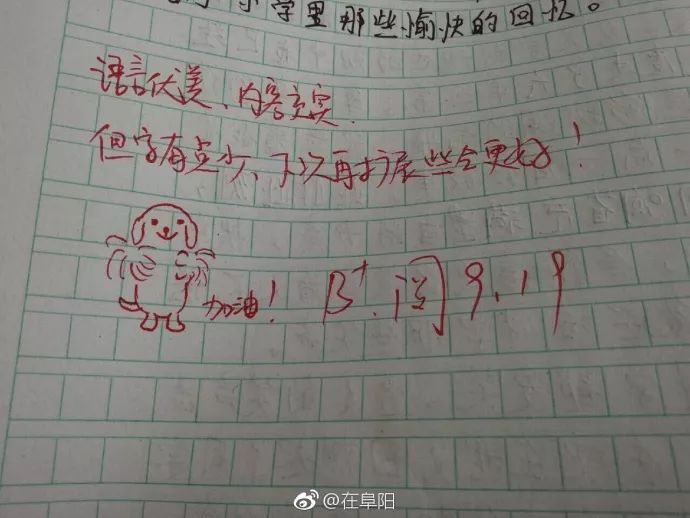 小学里那些愉快的回忆。
语言优美、内容充实
但字有点少、下次再扩展些会更好！
加油！
B⁺. 阅 9.19
@在阜阳